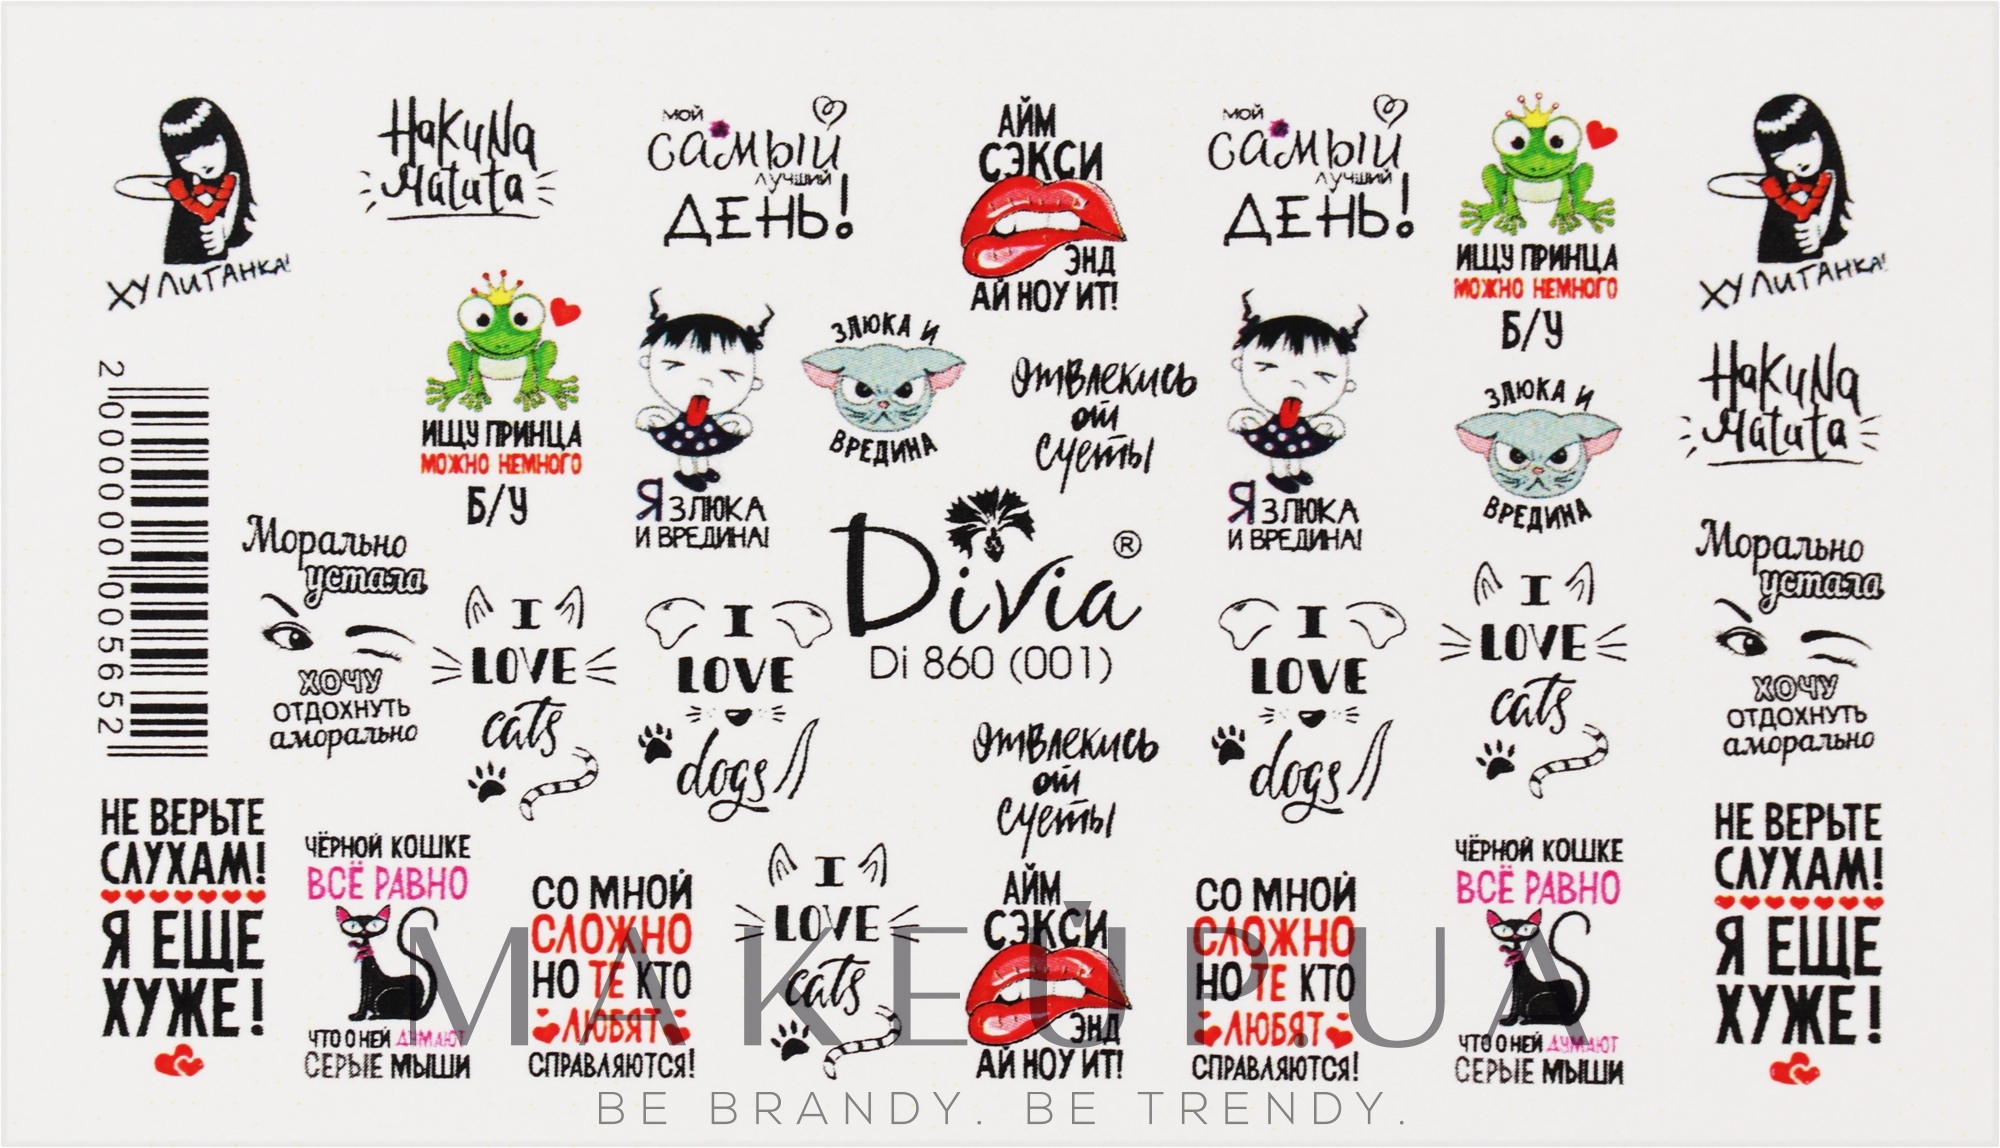 ХУЛИГАНКА!
HaKuNa
Matata
МОЙ
САМЫЙ
ЛУЧШИЙ
ДЕНЬ!
АЙМ
СЭКСИ
ЭНД
АЙ НОУ ИТ!
МОЙ
САМЫЙ
ЛУЧШИЙ
ДЕНЬ!
ИЩУ ПРИНЦА
МОЖНО НЕМНОГО
Б/У
ХУЛИГАНКА!
ИЩУ ПРИНЦА
МОЖНО НЕМНОГО
Б/У
Я ЗЛЮКА
И ВРЕДИНА!
ЗЛЮКА И
ВРЕДИНА
отвлекись
от
суеты
Я ЗЛЮКА
И ВРЕДИНА!
ЗЛЮКА И
ВРЕДИНА
HaKuNa
Matata
2000000005652
Морально
устала
ХОЧУ
ОТДОХНУТЬ
аморально
I
LOVE
cats
I
LOVE
dogs
Divia®
Di 860 (001)
отвлекись
от
суеты
I
LOVE
dogs
I
LOVE
cats
Морально
устала
ХОЧУ
ОТДОХНУТЬ
аморально
НЕ ВЕРЬТЕ
СЛУХАМ!
Я ЕЩЕ
ХУЖЕ!
ЧЁРНОЙ КОШКЕ
ВСЁ РАВНО
ЧТО О НЕЙ ДУМАЮТ
СЕРЫЕ МЫШИ
СО МНОЙ
СЛОЖНО
НО ТЕ КТО
ЛЮБЯТ
СПРАВЛЯЮТСЯ!
I
LOVE
cats
АЙМ
СЭКСИ
ЭНД
АЙ НОУ ИТ!
СО МНОЙ
СЛОЖНО
НО ТЕ КТО
ЛЮБЯТ
СПРАВЛЯЮТСЯ!
ЧЁРНОЙ КОШКЕ
ВСЁ РАВНО
ЧТО О НЕЙ ДУМАЮТ
СЕРЫЕ МЫШИ
НЕ ВЕРЬТЕ
СЛУХАМ!
Я ЕЩЕ
ХУЖЕ!
MAKEUP.UA
BE BRANDY. BE TRENDY.